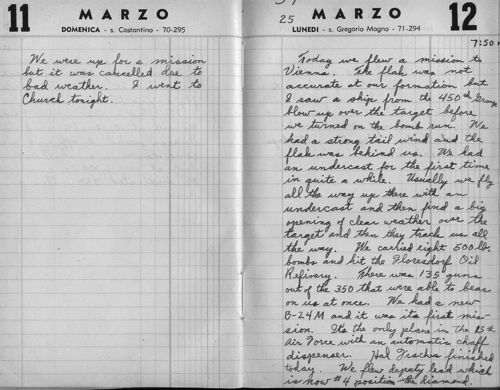 11 MARZO
DOMENICA - s. Costantino - 70-295
We were up for a mission
but it was cancelled due to
bad weather. I went to
Church tonight.
25 MARZO 12
LUNEDI - s. Gregorio Magno - 71-294
7:50
Today we flew a mission to
Vienna. The flak was not
accurate at our formation but
I saw a ship from the 450th Group
blow up over the target before
we turned on the bomb run. We
had a strong tail wind and the
flak was behind us. We had
an undercast for the first time
in quite a while. Usually we fly
all the way up there with an
undercast and then find a big
opening of clear weather over the
target and then they track us all
the way. We carried eight 500 lbs
bombs and hit the Floresdorf Oil
Refinery. There was 135 guns
out of the 350 that were able to bear
on us at once. We had a new
B-24 M and it was its first mis-
sion. Its the only plane in the 15th
Air Force with an automatic chaff
dispenser. Hal Tischer finished
today. We flew deputy lead which
is now #4 position the diamond.